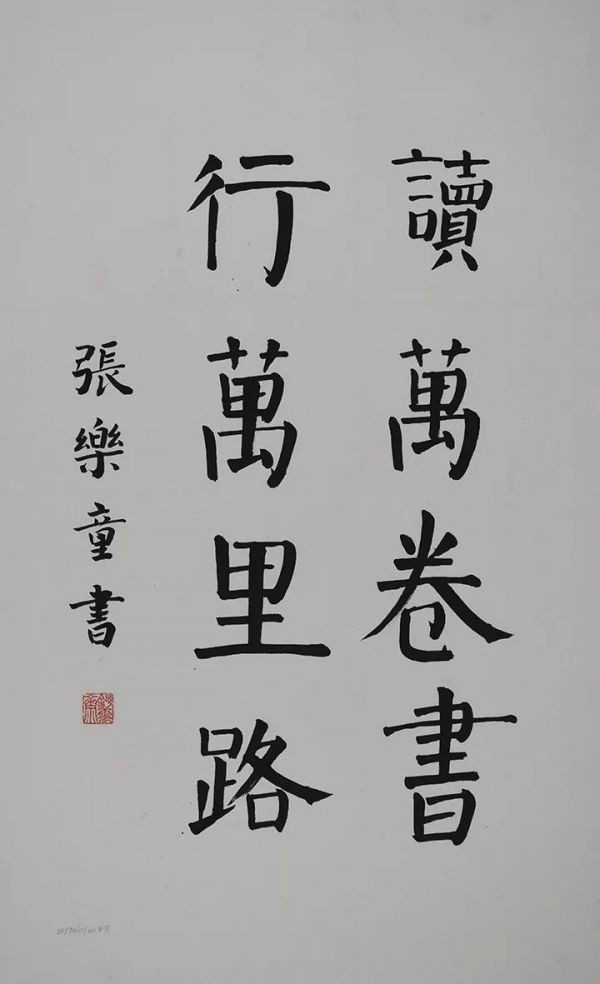 讀萬卷書
行萬里路
張樂童書